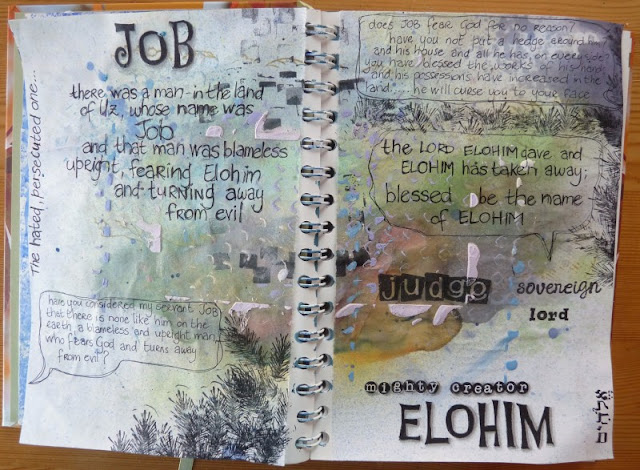 JOB
The hated, persecuted one...
there was a man in the land
of Uz, whose name was
Job
and that man was blameless
upright, fearing Elohim
and turning away
from evil
have you considered my servant JOB
that there is none like him on the
earth, a blameless and upright man
who fears God and turns away
from evil?
does JOB fear God for no reason?
have you not put a hedge around him
and his house and all he has, on every side?
you have blessed the works of his hands
and his possessions have increased in the
land. ... he will curse you to your face
the LORD ELOHIM gave and
ELOHIM has taken away;
blessed be the name
of ELOHIM
judge
sovereign
lord
mighty creator
ELOHIM
אֱלֹהִים